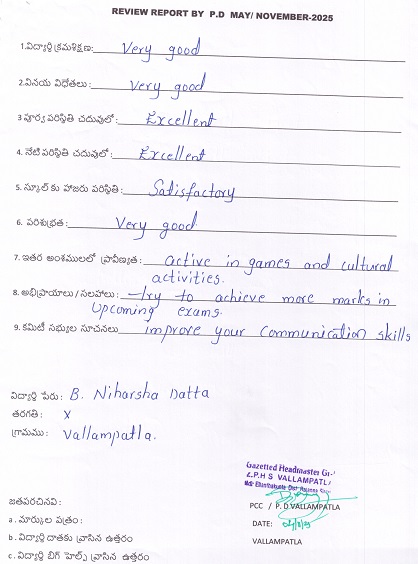 REVIEW REPORT BY P.D MAY/ NOVEMBER-2025
1.విద్యార్థి క్రమశిక్షణ: Very good
2.వినయ విధేతలు: Very good
3 పూర్వ పరిస్థితి చదువులో: Excellent
4. నేటి పరిస్థితి చదువులో: Excellent
5. స్కూల్ కు హాజరు పరిస్థితి: Satisfactory
6. పరిశుభ్రత: Very good
7. ఇతర అంశములలో ప్రావీణ్యత: active in games and cultural
activities.
8. అభిప్రాయాలు / సలహాలు: try to achieve more marks in
upcoming exams.
9. కమిటీ సభ్యుల సూచనలు improve your communication skills
విద్యార్థి పేరు: B. Niharsha Datta
తరగతి: X
గ్రామము: Vallampatla.
Gazetted Headmaster
Z.P.H S VALLAMPATLA
జతపరచినవి:
PCC / P.D.VALLAMPATLA
a. మార్కుల పత్రం:
DATE:
b. విద్యార్థి దాతకు వ్రాసిన ఉత్తరం
VALLAMPATLA
c. విద్యార్థి బిగ్ హెల్ప్ వ్రాసిన ఉత్తరం